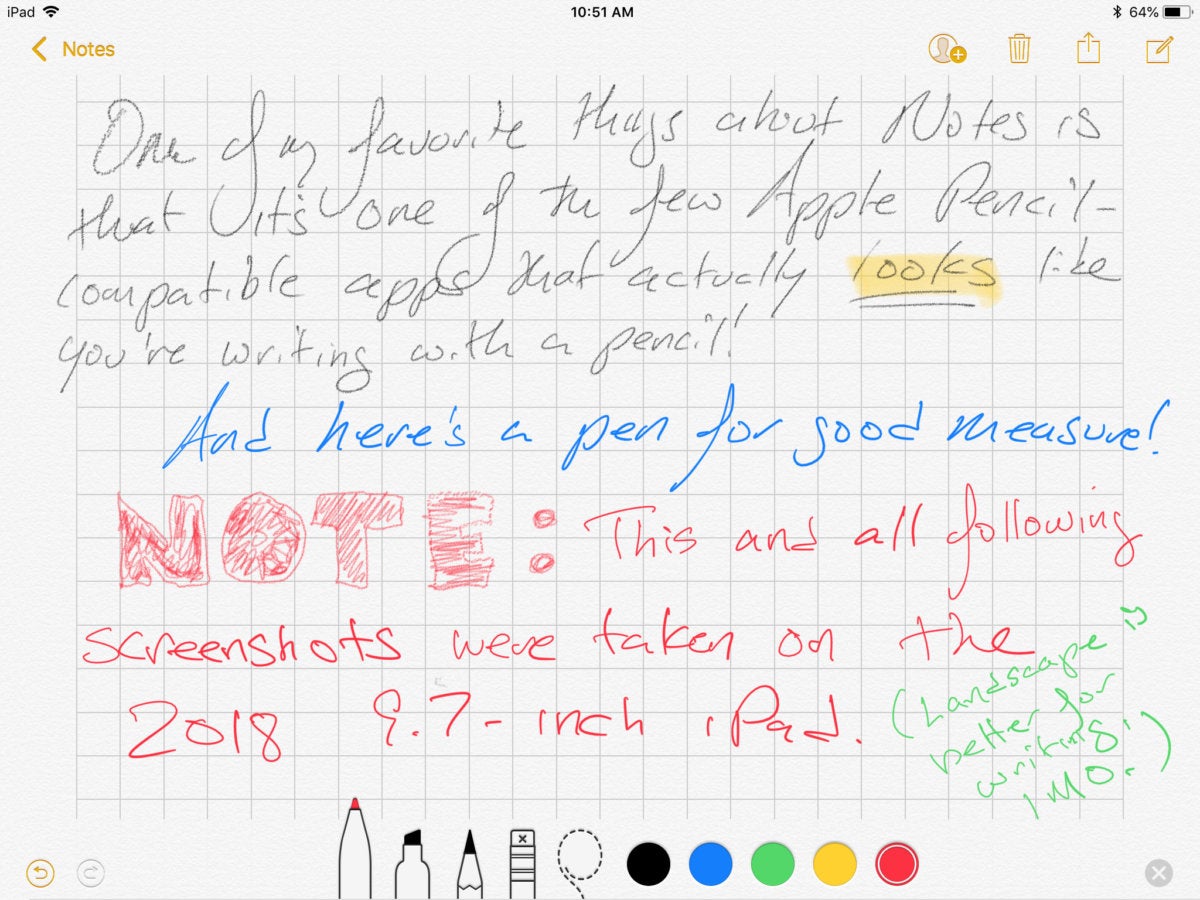 iPad 10:51 AM 64%
Notes
One of my favorite things about Notes is
that it's one of the few Apple Pencil-
compatible apps that actually looks like
you're writing with a pencil!
And here's a pen for good measure!
NOTE: This and all following
screenshots were taken on the
2018 9.7-inch iPad.
(Landscape is
better for
writing,
IMO.)